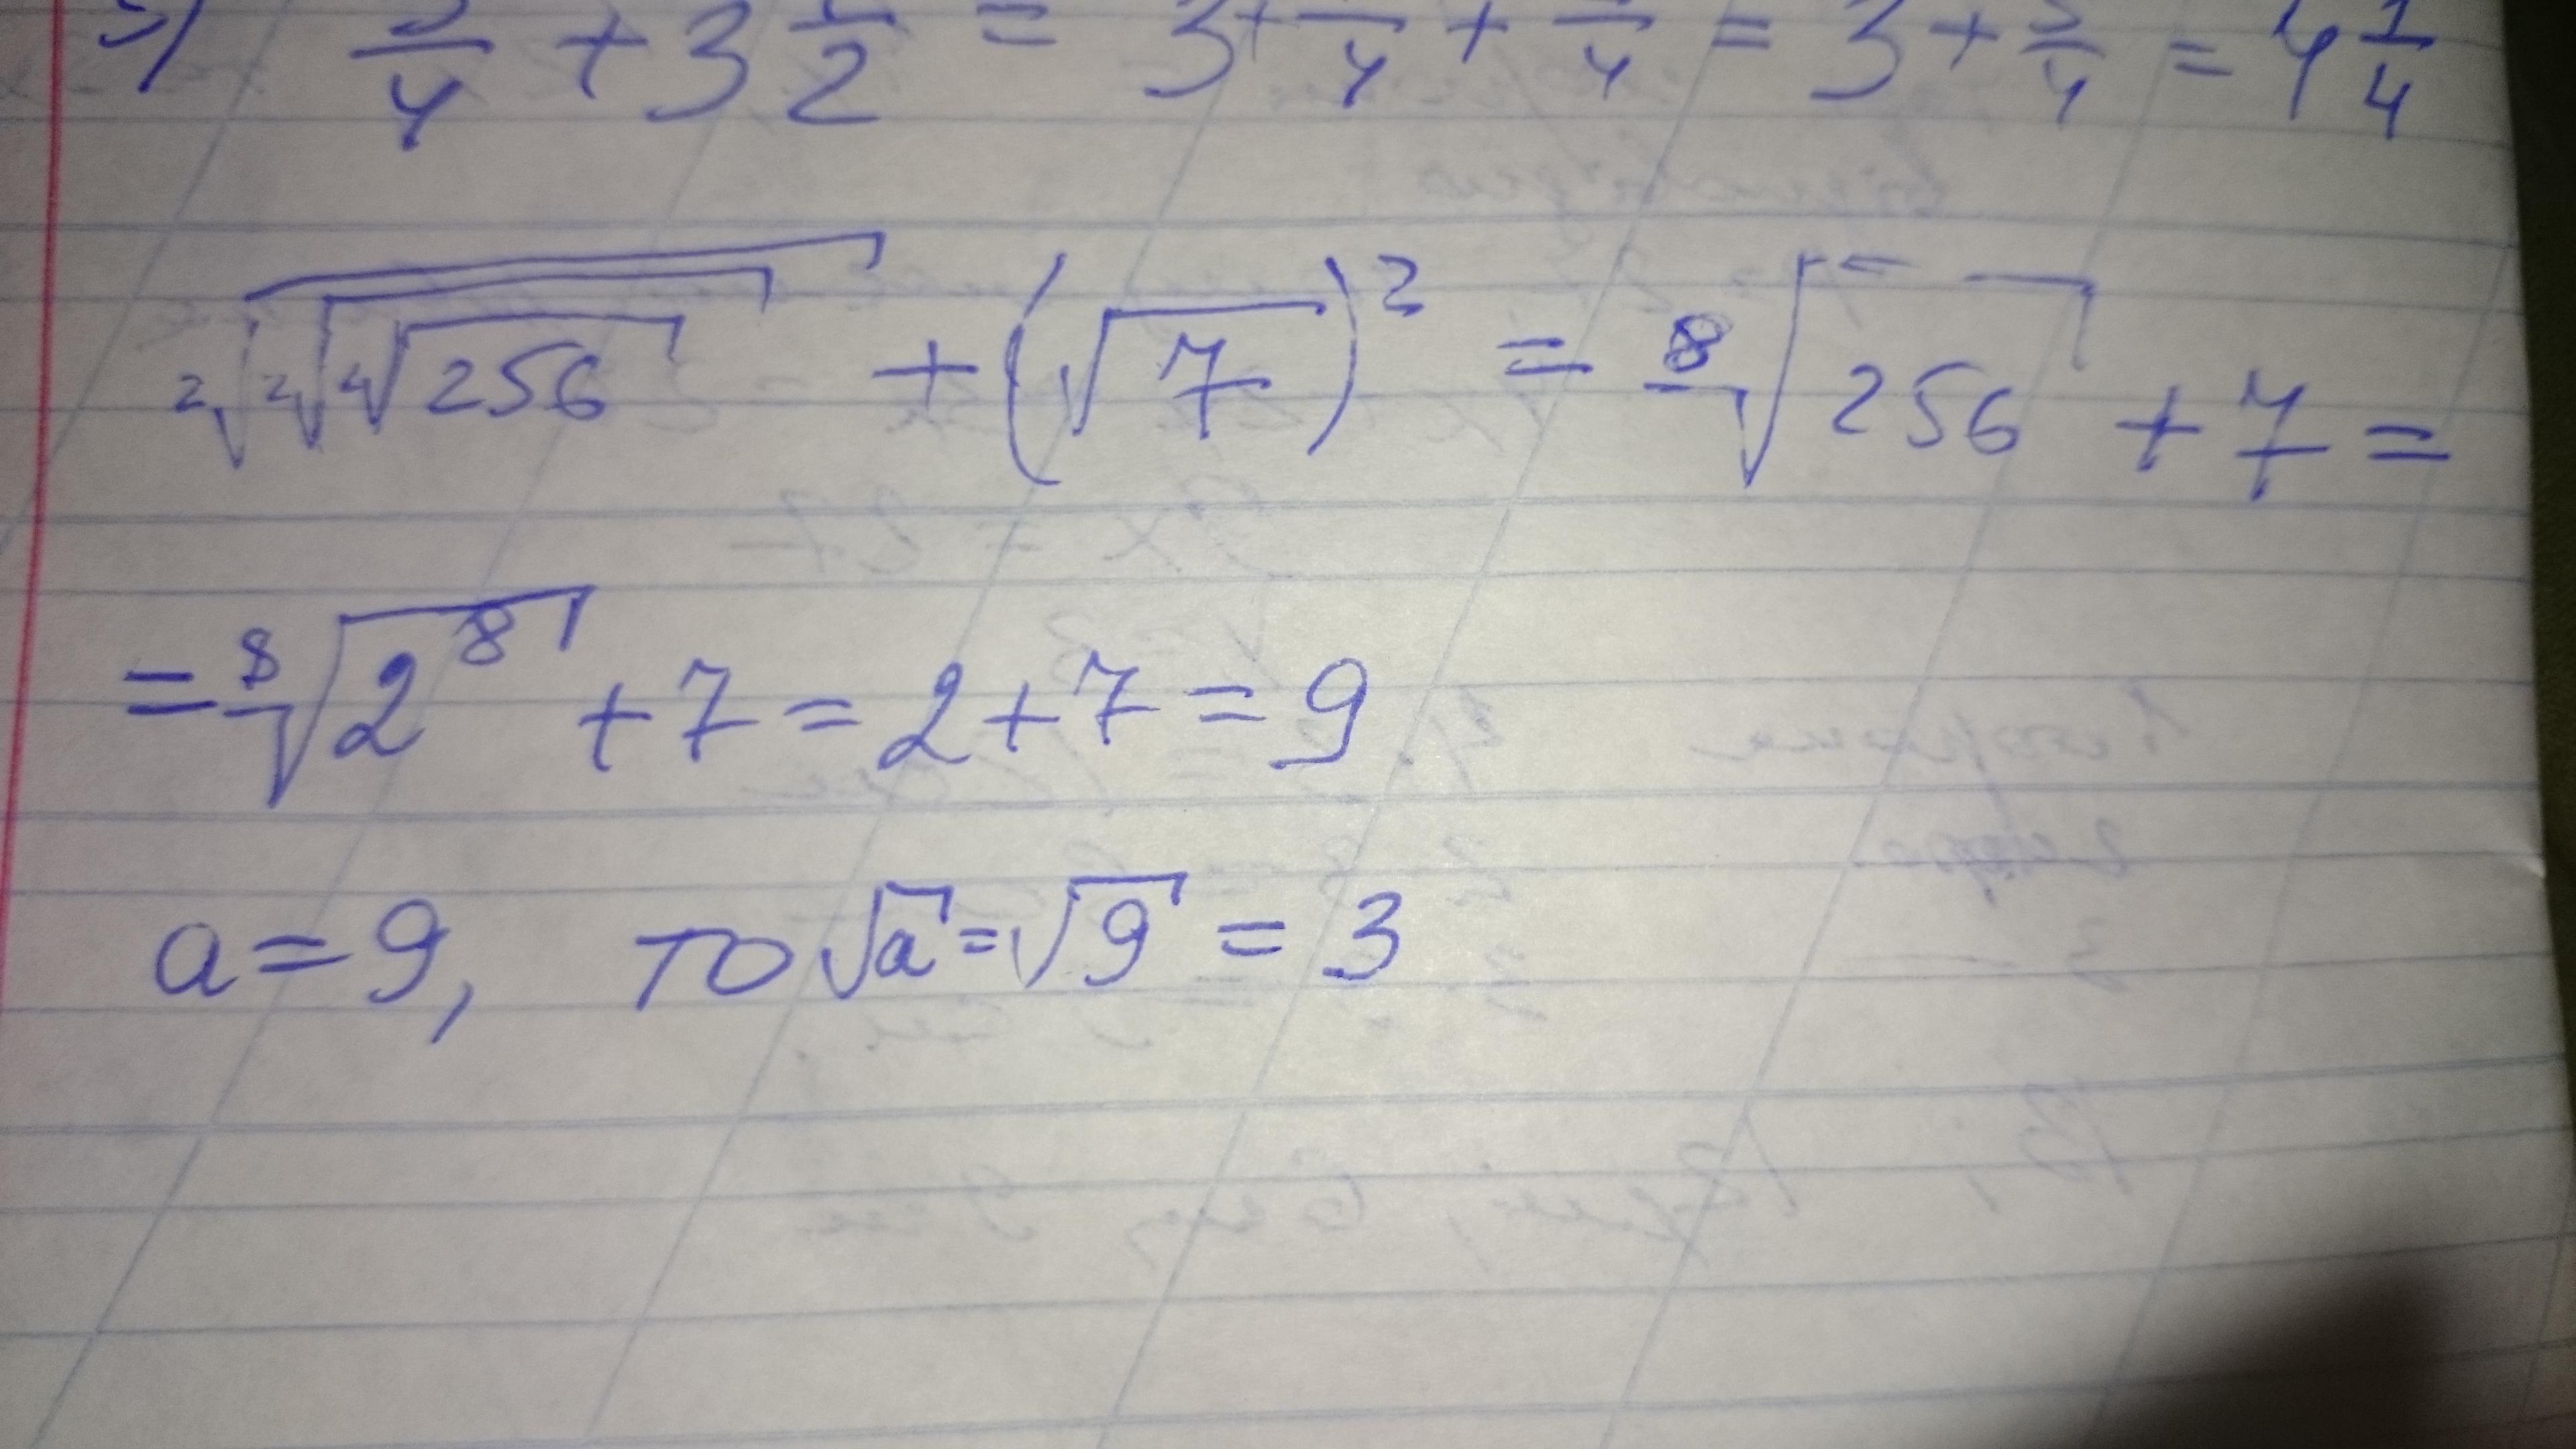 3/4 + 3 1/2 = 3 + /4 + /4 = 3 + 5/4 = 4 1/4
²√(²√(⁴√256)) + (√7)² = ⁸√256 + 7 =
= ⁸√(2⁸) + 7 = 2 + 7 = 9
a = 9, то √a = √9 = 3